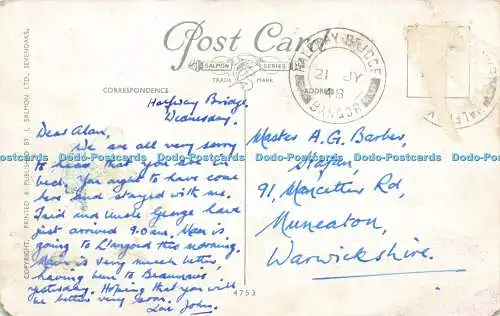 Post Card
SALMON SERIES
TRADE MARK
CORRESPONDENCE
ADDRESS
HALFWAY BRIDGE
21 JY
48
BANGOR
COPYRIGHT. PRINTED & PUBLISHED BY J. SALMON LTD., SEVENOAKS.
Halfway Bridge,
Wednesday.
Dear Alan,
We are all very sorry
to hear that you are in
bed. You ought to have come
here and stayed with me.
Taid and Uncle George have
just arrived 9.0 am. Mam is
going to Llangoed this morning.
is very much better,
having been to Beaumaris
yesterday. Hoping that you will
be better very soon.
Love John.
Master A. G. Barber,
91, Mancetter Rd,
Nuneaton,
Warwickshire.
4753
Postcards-Discount-Com